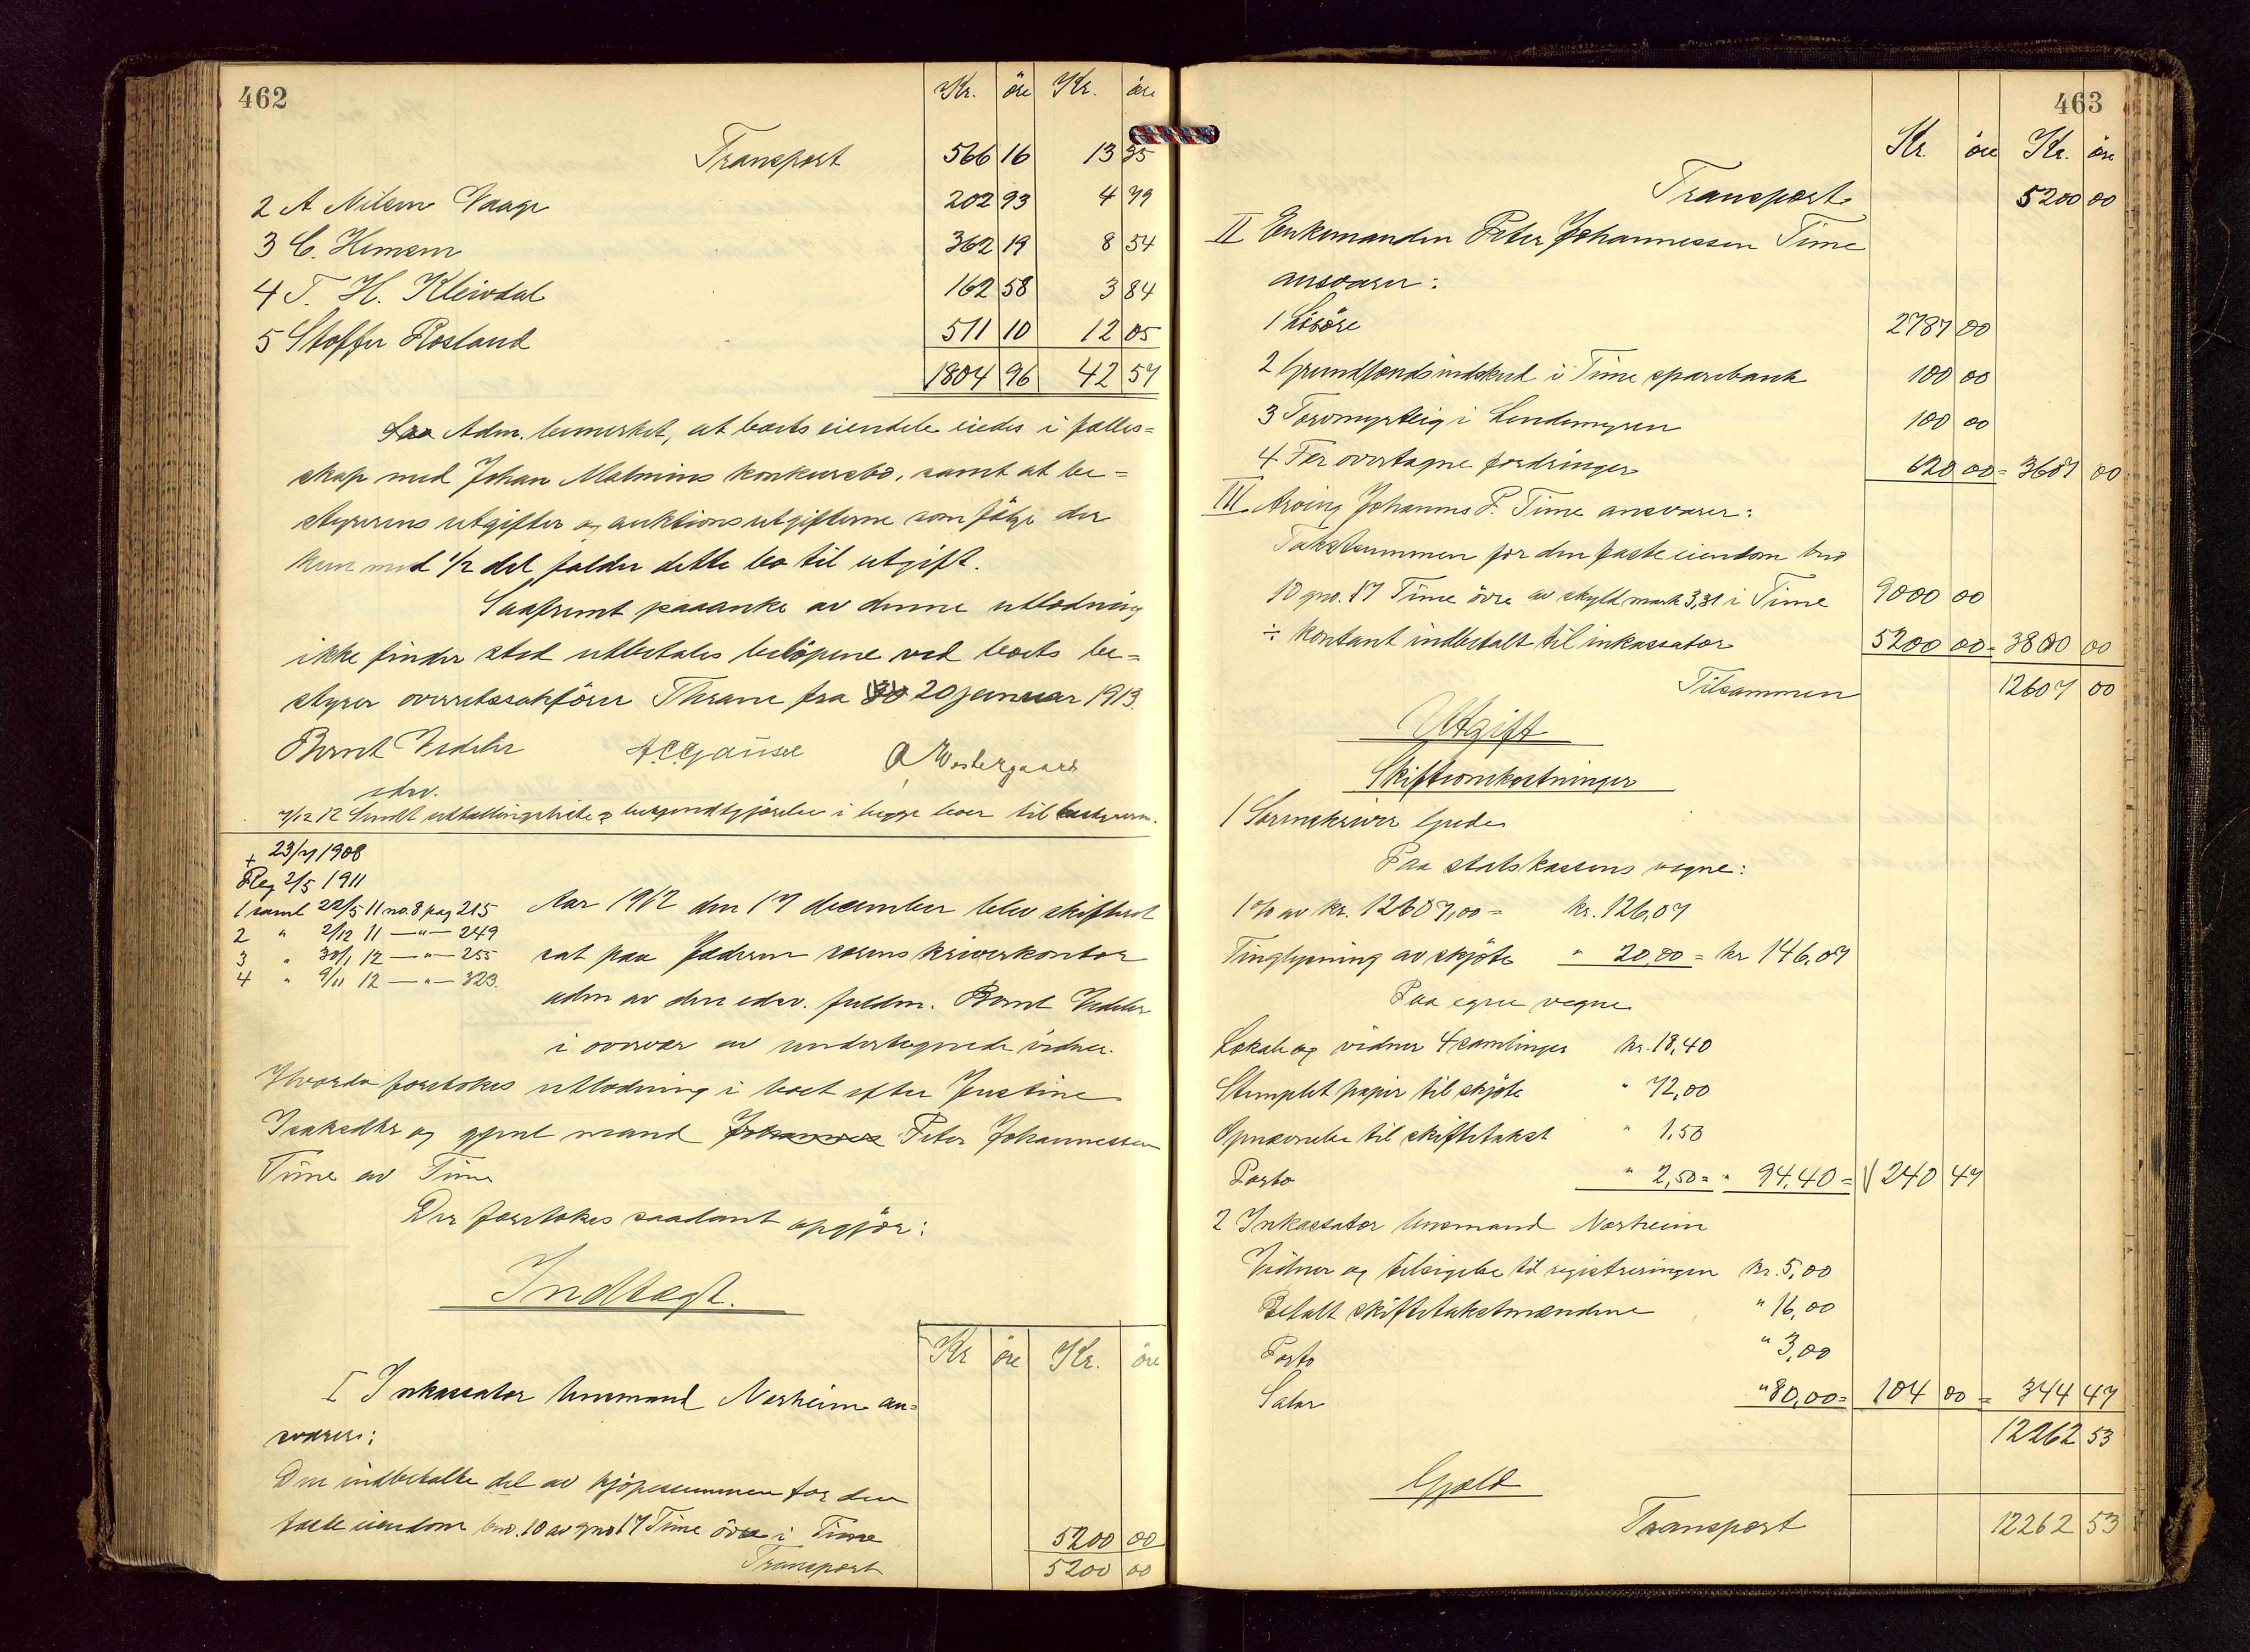 462
Kr. öre Kr. öre
Transport 566 16 13 35
2 A Nilsen Vaage 202 93 4 79
3 C. Hemsen 362 19 8 54
4 T. H. Kleivdal 162 58 3 84
5 Stoffer Rosland 511 10 12 05
1804 96 42 57
Adm. bemerket, at boets eiendele eiedes i fælles=
skap med Johan Malmins konkursbo, samt at be=
styrerens utgifter og auktionsutgifterne som følge der
kun med 1/2 del falder dette bo til utgift.
Saafremt paaanke av denne utlodning
ikke finder sted utbetales beløpene ved boets be=
styrer overretssakfører Thrane fra 20 januar 1913.
Bernt Vedeler
edsv.
A. Westergaard
7/12 12 Sendt utbetalingsliste og bekjendtgjørelse i begge boer til bestyreren.
+ 23/7 1908
Reg 2/5 1911
1 saml 22/5 11 no. 8 pag 215
2 " 2/12 11 —"— 249
3 " 30/1 12 —"— 255
4 " 9/11 12 —"— 323.
Aar 1912 den 17 december blev skifteret
sat paa Jæderen sorenskriverkontor
adm av den edsv. fuldm. Bernt Vedeler
i overvær av undertegnede vidner.
Hvorda foretokes utlodning i boet efter Justine
Isaksdtr og gjenl mand Johannes Peter Johannessen
Time av Time
Der foretokes saadant opgjør:
Indtægt.
Kr öre Kr. öre
I Inkassator lensmand Norheim an=
svarer:
Den indbetalte del av kjöpesummen for den
faste eiendom bno. 10 av gno 17 Time övre i Time 5200 00
Transport 5200 00
463
Kr. öre Kr. öre
Transport 5200 00
II Enkemanden Peter Johannessen Time
ansvarer:
1 Lösöre 2787 00
2 Grundfondsindskud i Time sparebank 100 00
3 Torvmyrteig i Lendemyren 100 00
4 For overtagne fordringer 620 00 = 3607 00
III Arving Johannes P. Time ansvarer:
Takstsummen for den faste eiendom bno
10 gno. 17 Time övre av skyld mark 3,31 i Time 9000 00
÷ kontant indbetalt til inkassator 5200 00 = 3800 00
Tilsammen 12607 00
Utgift
Skifteomkostninger
1 Sorenskriver Gjedes
Paa statskassens vegne:
1 % av kr. 12607,00 = kr. 126,07
Tinglysning av skjöte " 20,00 = kr 146,07
Paa egne vegne
Lokale og vidner 4 samlinger kr. 18,40
Stemplet papir til skjöte " 72,00
Opnævnelse til skiftetakst " 1,50
Porto " 2,50 = " 94,40 = 240 47
2 Inkassator lensmand Norheim
Vidner og tilsigelse til registreringen kr. 5,00
Betalt skiftetakstmændene " 16,00
Porto " 3,00
Salær " 80,00 = 104 00 = 344 47
12262 53
Gjæld
Transport 12262 53